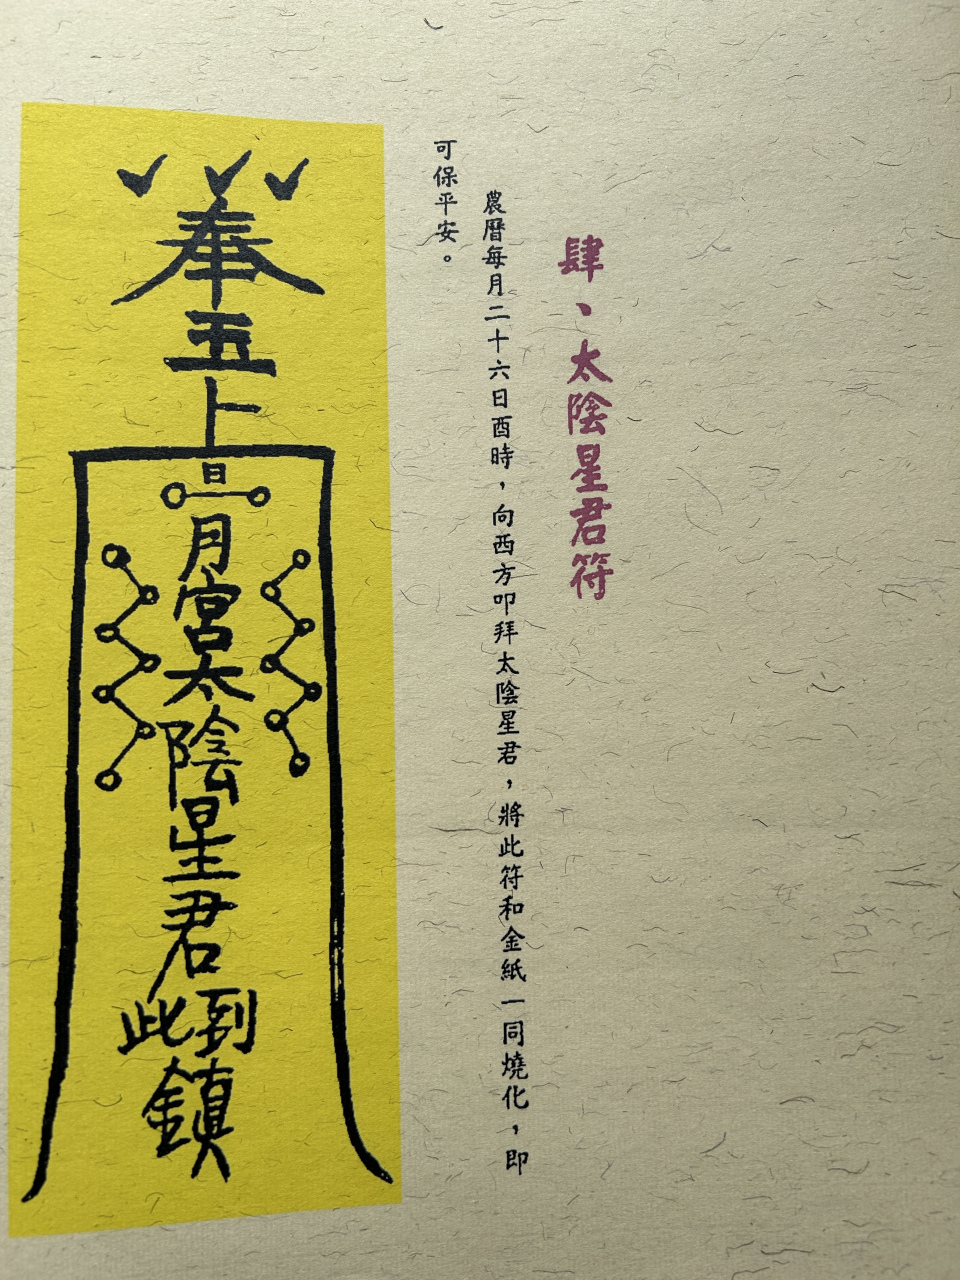 肆、太陰星君符
農曆每月二十六日酉時，向西方叩拜太陰星君，將此符和金紙一同燒化，即
可保平安。
奉
玉
上
日
月宮太陰星君
到此
鎮